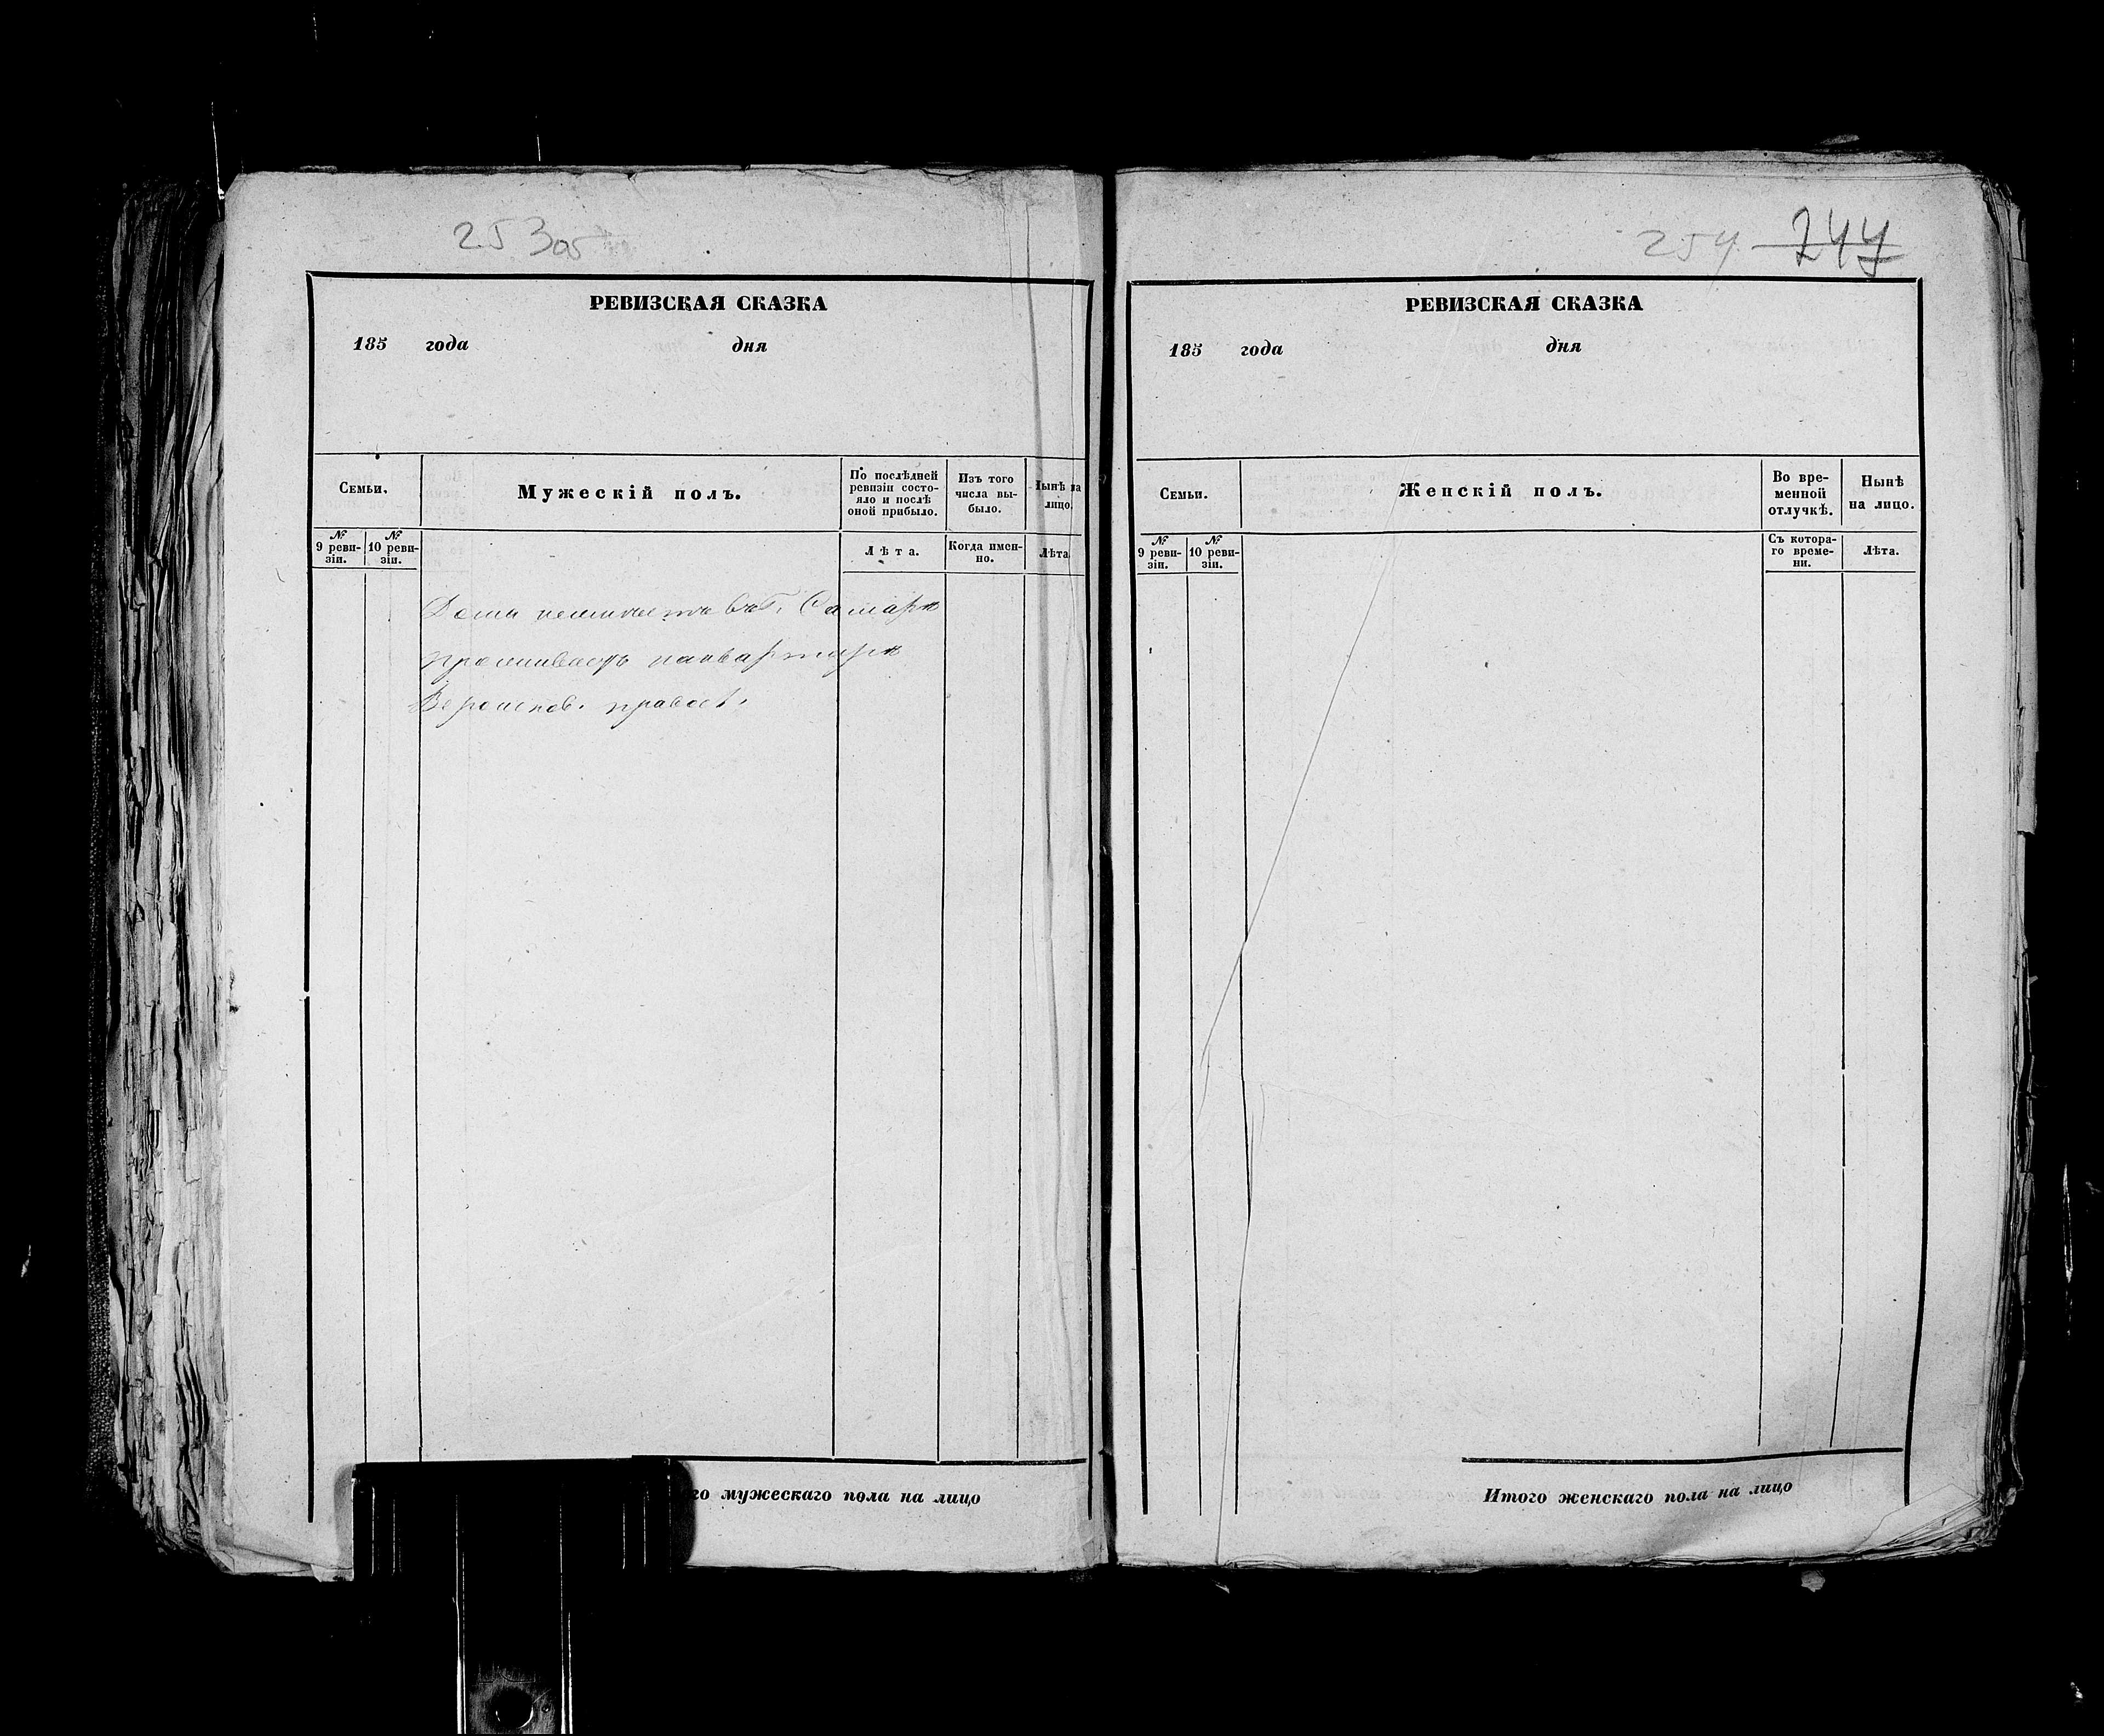 253об
РЕВИЗСКАЯ СКАЗКА
185 года дня
Семьи.
Мужескій полъ.
По послѣдней
ревизіи состо-
яло и послѣ
оной прибыло.
Изъ того
числа вы-
было.
Нынѣ на
лицо.
№
9 реви-
зіи.
№
10 реви-
зіи.
Лѣта.
Когда имен-
но.
Лѣта
Дома неимѣетъ въ Г. Самарѣ
проживаетъ на квартирѣ
Вероиспов. правосл.
го мужескаго пола на лицо
254 244
РЕВИЗСКАЯ СКАЗКА
185 года дня
Семьи.
Женскій полъ.
Во вре-
менной
отлучкѣ.
Нынѣ
на лицо.
№
9 реви-
зіи.
№
10 реви-
зіи.
Съ котора-
го време-
ни.
Лѣта.
Итого женскаго пола на лицо